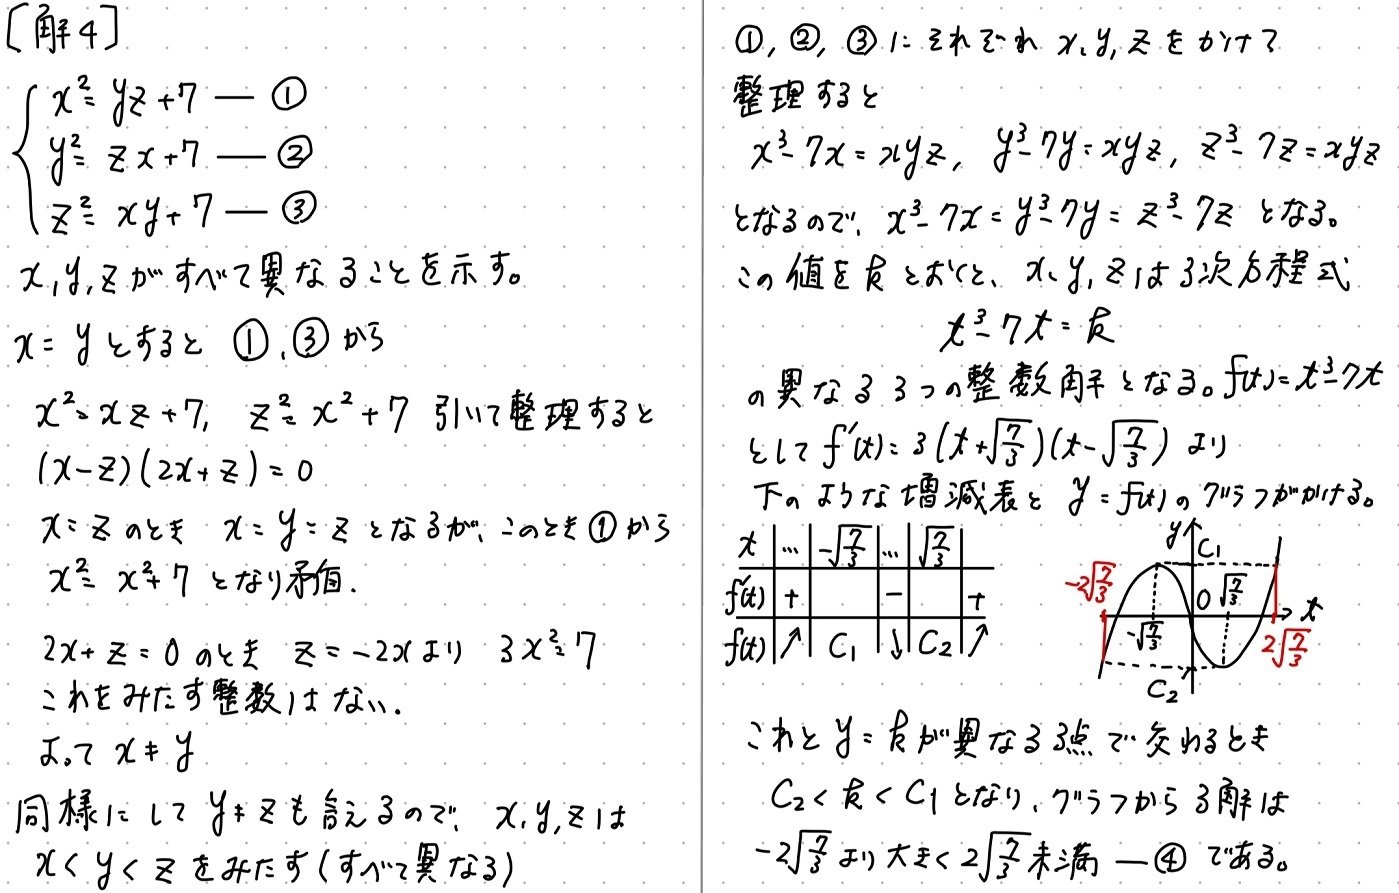 [解4]
x²=yz+7 ― ①
y²=zx+7 ― ②
z²=xy+7 ― ③
x,y,zがすべて異なることを示す。
x=yとすると ①,③から
x²=xz+7, z²=x²+7 引いて整理すると
(x-z)(2x+z)=0
x=zのとき x=y=zとなるが、このとき①から
x²=x²+7 となり矛盾.
2x+z=0のとき z=-2xより 3x²=7
これをみたす整数はない.
よって x≠y
同様にして y≠zも言えるので、x,y,zは
x<y<zをみたす(すべて異なる)
①,②,③にそれぞれ x,y,zをかけて
整理すると
x³-7x=xyz, y³-7y=xyz, z³-7z=xyz
となるので、x³-7x=y³-7y=z³-7z となる。
この値をkとおくと、x,y,zは3次方程式
t³-7t=k
の異なる3つの整数解となる。f(t)=t³-7t
として f'(t)=3(t+√(7/3))(t-√(7/3)) より
下のような増減表と y=f(t)のグラフがかける。
t … -√(7/3) … √(7/3)
f'(t) + - +
f(t) ↗ C₁ ↘ C₂ ↗
y C₁
-2√(7/3) 0 √(7/3) t
-√(7/3) 2√(7/3)
C₂
これと y=kが異なる3点で交わるとき
C₂<k<C₁となり、グラフから3解は
-2√(7/3)より大きく2√(7/3)未満 ―④ である。